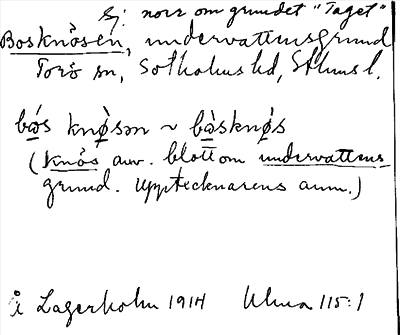 Ej: nors om grundet "Taget"
Bosknösen, undervattensgrund
Torö sn, Sotholms hd, Sthms l.
bø̄́s knø̀sən ~ bø̄̀sknø̀s
(knös anv. blott om undervattens
grund. Upptecknarens anm.)
Å Lagerholm 1914 Uluna 115:1